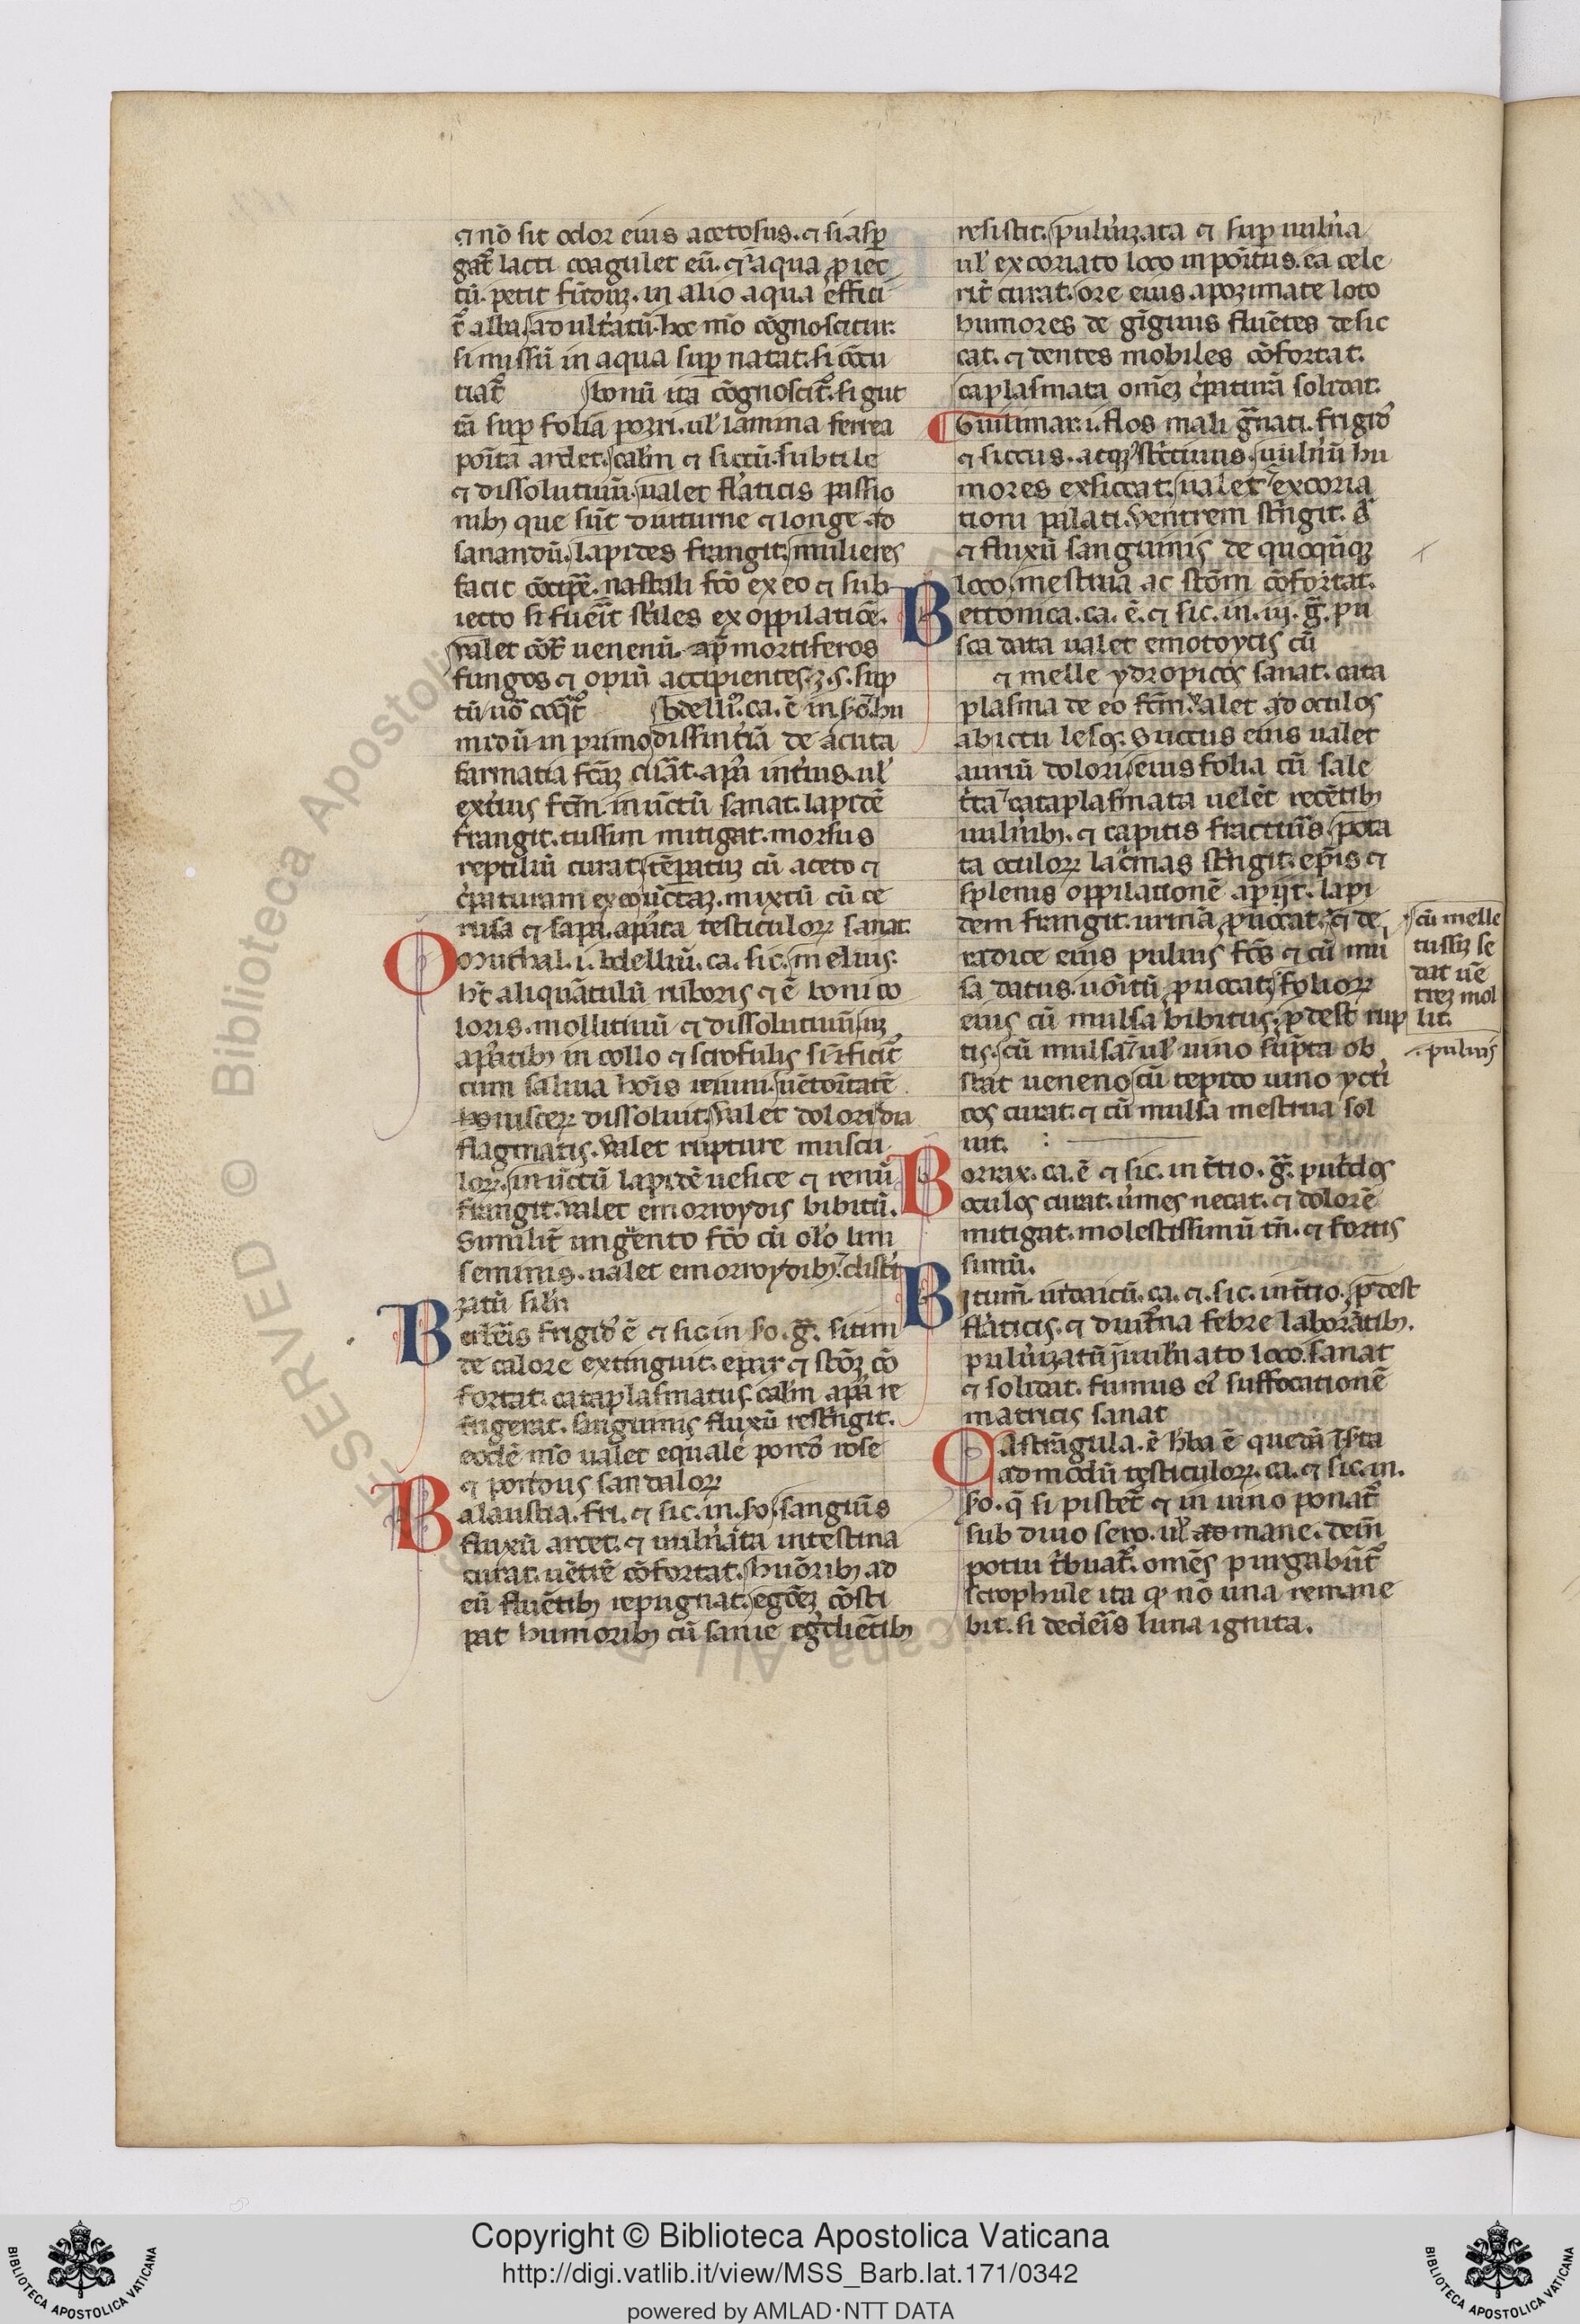 ⁊ nō sit odor eius acetosus. ⁊ si asp̄
gat᷑ lacti coagulet eū. ⁊ i̅ aqua proiec
tū. petit fūdūz. in alio aqua effici
t᷑ alba. adult̓atū. hoc mō cōgnoscitur.
si missū in aqua sup natat. si ōcu
tiat᷑ bonū ita cōgnoscit᷑. si gut
ta sup folia porri. ul̓ lamina ferrea
poīta ardet. cal̓m ⁊ siccū. subtile
⁊ dissolutiuū. ualet fl̓aticis passio
nib; que sūt diuturne ⁊ longe. ad
sanandū. lapides frangit. mulieres
facit cōcipe̅. nascali fc̄o ex eo ⁊ sub
iecto si fuēīt st̓iles ex oppilatiōe.
valet cōt᷑ uenenū. ap̄ mortiferos
fungos ⁊ opiū accipientes. ʒ. s̓. sup
tū uō coq̄t᷑ bdelli᷒. ca. ē in. s̓o. hu
midū in primo dissint̓iā de acuta
farmatia fc̄az curāt. ap̄a int̓ius. ul̓
ext̓ius fc̄m. inūctū sanat. lapidē
frangit. tussim mitigat. morsus
reptiliū curat. tēpatuz cū aceto ⁊
c̓paturam ex eo ūctaz. mixtū cū ce
rusa ⁊ sapa. ap̄ita testiculoꝝ sanat.
Omithal. i. bdelliū. ca. sic. melius.
hīt aliquātulū ruboris ⁊ ē boni co
loris. mollitiuū ⁊ dissolutiuū.
ap̄atib; in collo ⁊ scrofulis si u̓ficit᷑
cum saliua hoīs ieiuni. uētoītatē
dissoluit. Valet dolori dia
flagmatis. Valet rupture muscu
loꝝ. inūctū lapidē uesice ⁊ renū
frangit. valet emoroydis bibitū.
Similit̄ ungēnto fc̄o cū ol̓o lini
seminis. ualet emoroydib;. cliste̓
zatū sil̓r
Berberis frigid᷒ ē ⁊ sic. in s̓o. g̅. sitim
de calore extinguit. epar ⁊ stōz cō
fortat. cataplasmatus. cal̓m ap̄a re
frigerat. sanguinis fluxū rest̓ngit.
eodē mō ualet equale pondō rose
⁊ pondus sandaloꝝ
Balaustia. fri. ⁊ sic. in. s̓o. sanguīs
fluxū arcet. ⁊ uuln̓ata intestina
curat. uētrē cōfortat. huōrib; ad
eū fluētib; repugnat. cōsti
pat humorib; cū sanie egdiētib;
resistit. puluizata ⁊ sup uuln̓a
ul̓ excoriato loco inpoītus. ea cele
rit̄ curat. ore eius apozimate loto
humores de gīgiuis fluētes desic
cat. ⁊ dentes mobiles cōfortat.
caplasmata omēz c̓paturā solidat.
Guilinar. i. flos mali g̅nati. frigid᷒
⁊ siccus. atqꝫ st̓ictiuus. uulnūm hu
mores exsiccat. ualet excoria
tioni palati. Ventrem st̓ngit.
⁊ fluxū sanguinis de quocūqꝫ
loco. mestrua ac stōm cōfortat.
Bettonica. ca. ē. ⁊ sic. in. iij. g̅. pri
sca data ualet emotoycis cū
⁊ melle ydropicos sanat. cata
plasma de eo fc̄m. ualet ad oculos
ab ictu lesos. Succus eius ualet
auriū dolori. eius folia cū sale
t̓ta cataplasmata uelēt recētib;
uuln̓ib;. ⁊ capitis fracturis. pota
ta oculoꝝ lac̓mas st̓ngit. epīs ⁊
splenis oppilationē apijt. lapi
dem frangit. urinā puocat. ⁊ de
radice eius puluis fc̄s ⁊ cū mu
sa datus. uoītū puocat. folioꝝ
eius cū mulsa bibitus. pdest rup
tis. cū mulsa ul̓ uino sūpta ob
stat ueneno. cū tepido uino ycti
cos curat. ⁊ cū mulsa mestrua sol
uit.
Borrax. ca. ē ⁊ sic. in t̓tio. g̅. put̓dos
oculos curat. u̓mes necat. ⁊ dolorē
mitigat. molestissimū tn̄. ⁊ fortis
simū.
Bitum̄. iudaicū. ca. ⁊. sic. in t̓tio. pdest
fl̓aticis. ⁊ diut̓na febre laborātib;.
puluizatū i uul̓nato loco. sanat
⁊ solidat. fumus ei᷒ suffocationē
matricis sanat
Castrāgula. ē h̓ba ē quedā
ad modū testiculoꝝ. ca. ⁊ sic. in.
s̓o. q̄ si pistet᷑ ⁊ in uino ponat᷑
sub diuo sero. ul̓ mane. deīn
potui t̓buat᷑. omēs purgabūt᷑
scrophule ita qꝫ nō una remane
bit. si decl̓eīs luna ignita.
cū melle
tussiz se
dat uē
trez mol
lit.
. puluis
Copyright © Biblioteca Apostolica Vaticana
http://digi.vatlib.it/view/MSS_Barb.lat.171/0342
powered by AMLAD·NTT DATA
BIBLIOTECA APOSTOLICA VATICANA
BIBLIOTECA APOSTOLICA VATICANA